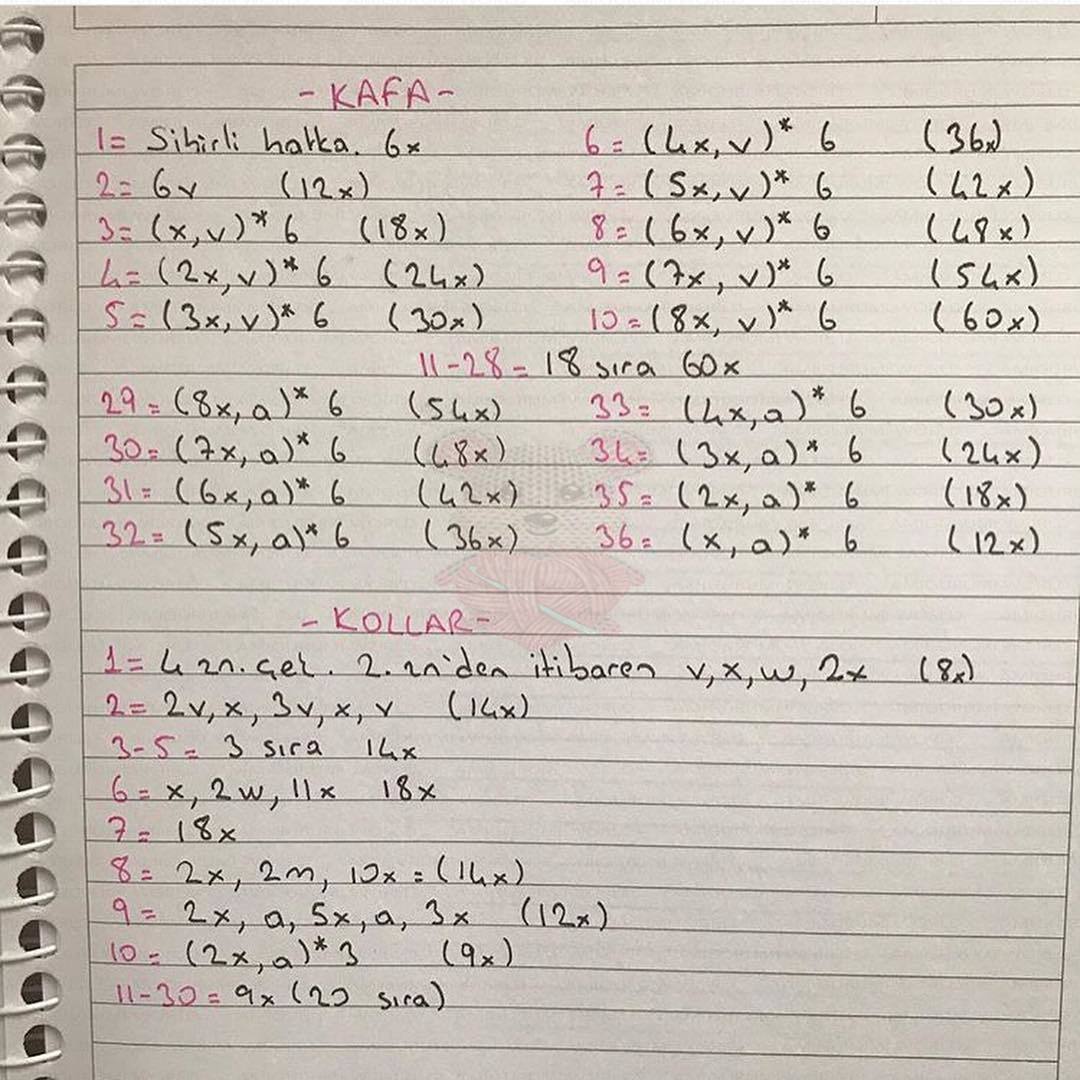 - KAFA -
1= Sihirli halka. 6x
2= 6v (12x)
3= (x, v)* 6 (18x)
4= (2x, v)* 6 (24x)
5= (3x, v)* 6 (30x)
6= (4x, v)* 6 (36x)
7= (5x, v)* 6 (42x)
8= (6x, v)* 6 (48x)
9= (7x, v)* 6 (54x)
10= (8x, v)* 6 (60x)
11-28= 18 sıra 60x
29= (8x, a)* 6 (54x)
30= (7x, a)* 6 (48x)
31= (6x, a)* 6 (42x)
32= (5x, a)* 6 (36x)
33= (4x, a)* 6 (30x)
34= (3x, a)* 6 (24x)
35= (2x, a)* 6 (18x)
36= (x, a)* 6 (12x)
- KOLLAR -
1= 4 zn. çek. 2. zn'den itibaren v, x, w, 2x (8x)
2= 2v, x, 3v, x, v (14x)
3-5= 3 sıra 14x
6= x, 2w, 11x 18x
7= 18x
8= 2x, 2m, 10x = (14x)
9= 2x, a, 5x, a, 3x (12x)
10= (2x, a)* 3 (9x)
11-30= 9x (20 sıra)